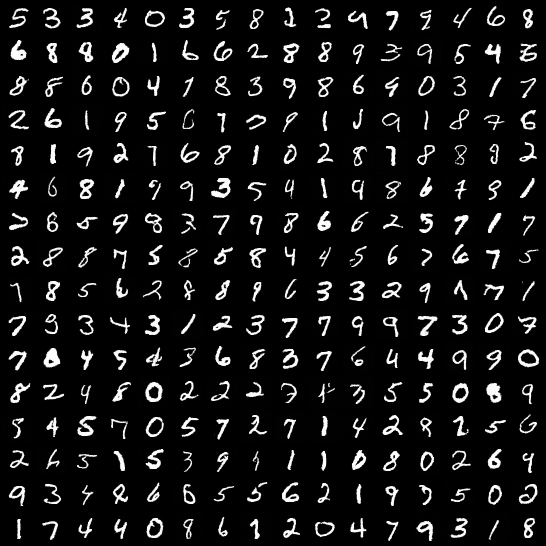 5 3 3 4 0 3 5 8 2 2 9 7 9 4 6 8
6 8 8 0 1 6 6 2 8 8 9 3 9 5 4 3
8 8 6 0 4 1 8 3 9 8 6 9 0 3 1 7
2 6 1 9 5 6 7 9 1 1 9 1 8 7 6
8 1 9 2 7 6 8 1 0 2 8 7 8 8 9 2
4 6 8 1 9 9 3 5 4 1 9 8 6 7 9 1
7 8 5 9 8 3 7 9 8 6 6 2 5 7 1 7
2 8 8 7 5 8 5 8 4 4 5 6 7 6 7 5
7 8 5 6 2 8 8 9 6 3 3 2 9 7 7 1
7 9 3 4 3 1 2 3 7 7 9 9 7 3 0 7
7 8 4 5 4 3 6 8 3 7 6 4 4 9 9 0
8 2 4 8 0 2 2 2 7 3 5 5 0 8 9
4 5 7 0 5 7 2 7 1 4 2 8 2 5 6
2 6 5 1 5 3 9 9 1 1 0 8 0 2 6 9
9 3 4 2 6 6 5 5 6 2 1 9 3 5 0 2
1 7 4 4 0 8 6 1 2 0 4 7 9 3 1 8